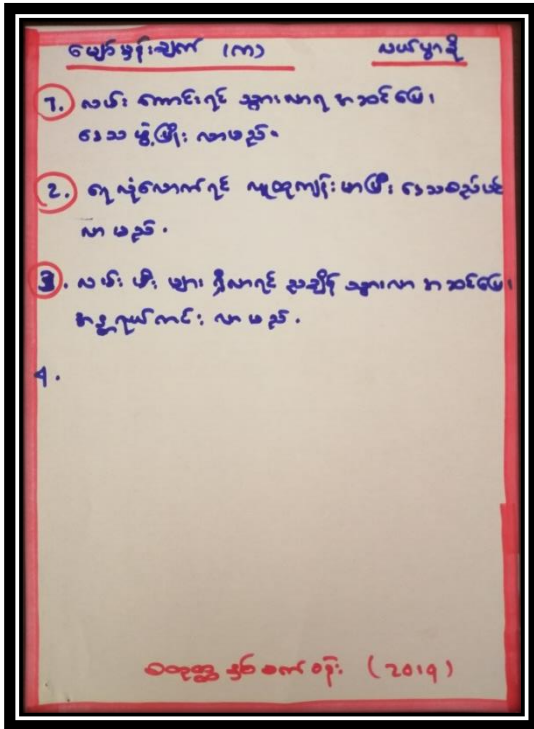 မျှော်မှန်းချက် (က) လယ်မွာနို
1. လမ်း ကောင်းရင် သွားလာရ အဆင်ပြေ၊
ဒေသ ဖွံ့ဖြိုး လာမည်။
2. ရေ လုံလောက်ရင် လူထုကျန်းမာပြီး ဒေသစည်ပင်
လာ မည်။
3. လမ်း မီး များ ရှိလာရင် ညချိန် သွားလာ အဆင်ပြေ၊
အန္တရာယ်ကင်း လာ မည်။
4.
စတုတ္ထ နှစ် စက်ဝန်း (2019)